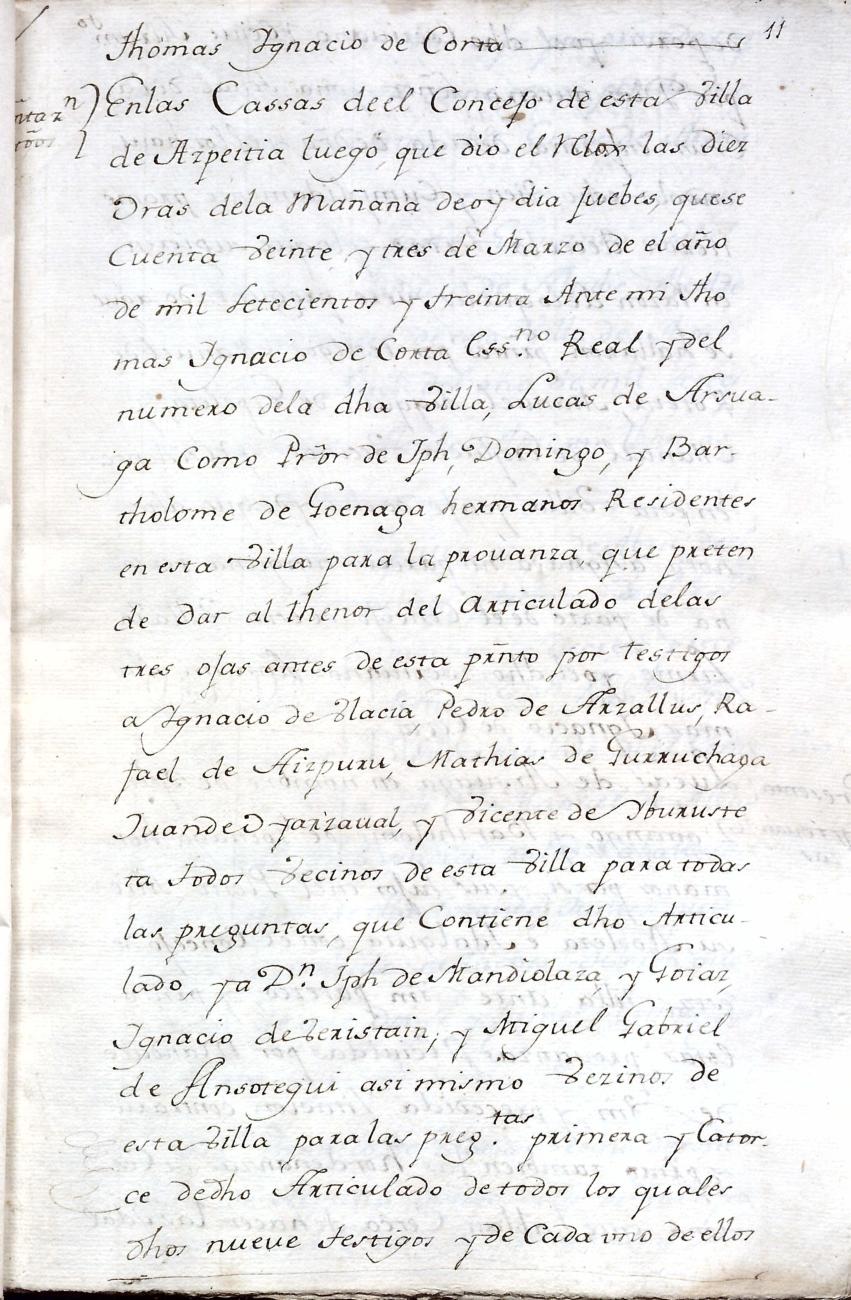 11
Thomas Ignacio de Corta
En las Cassas de el Concejo de esta Villa
de Azpeitia luego, que dio el Relox las diez
Oras dela Mañana de oy dia Juebes, que se
Cuenta Veinte y tres de Marzo de el año
de mil setecientos y treinta Ante mi Tho
mas Ignacio de Corta Ess.no Real y del
numero dela dha Villa, Lucas de Arsua-
ga Como Pror de Jph, Domingo, y Bar-
tholome de Goenaga hermanos Residentes
en esta Villa para la prouanza, que preten
de Dar al thenor del Articulado delas
tres ojas antes de esta prnto por testigos
a Ignacio de Vlacia Pedro de Arzallus, Ra-
fael de Aizpuru, Mathias de Gurruchaga
Juan de Oyarzaual, y Vicente de Yburuste
ta todos Vecinos de esta Villa para todas
las preguntas, que Contiene dho Articu-
lado, y a Dn. Jph de Mandiolaza, y Goiaz,
Ignacio de Veristain, y Miguel Gabriel
de Ansotegui asi mismo Vezinos de
esta Villa para las preg.tas primera y Cator-
ce de dho Articulado de todos los quales
dhos nueve testigos y de Cada uno de ellos